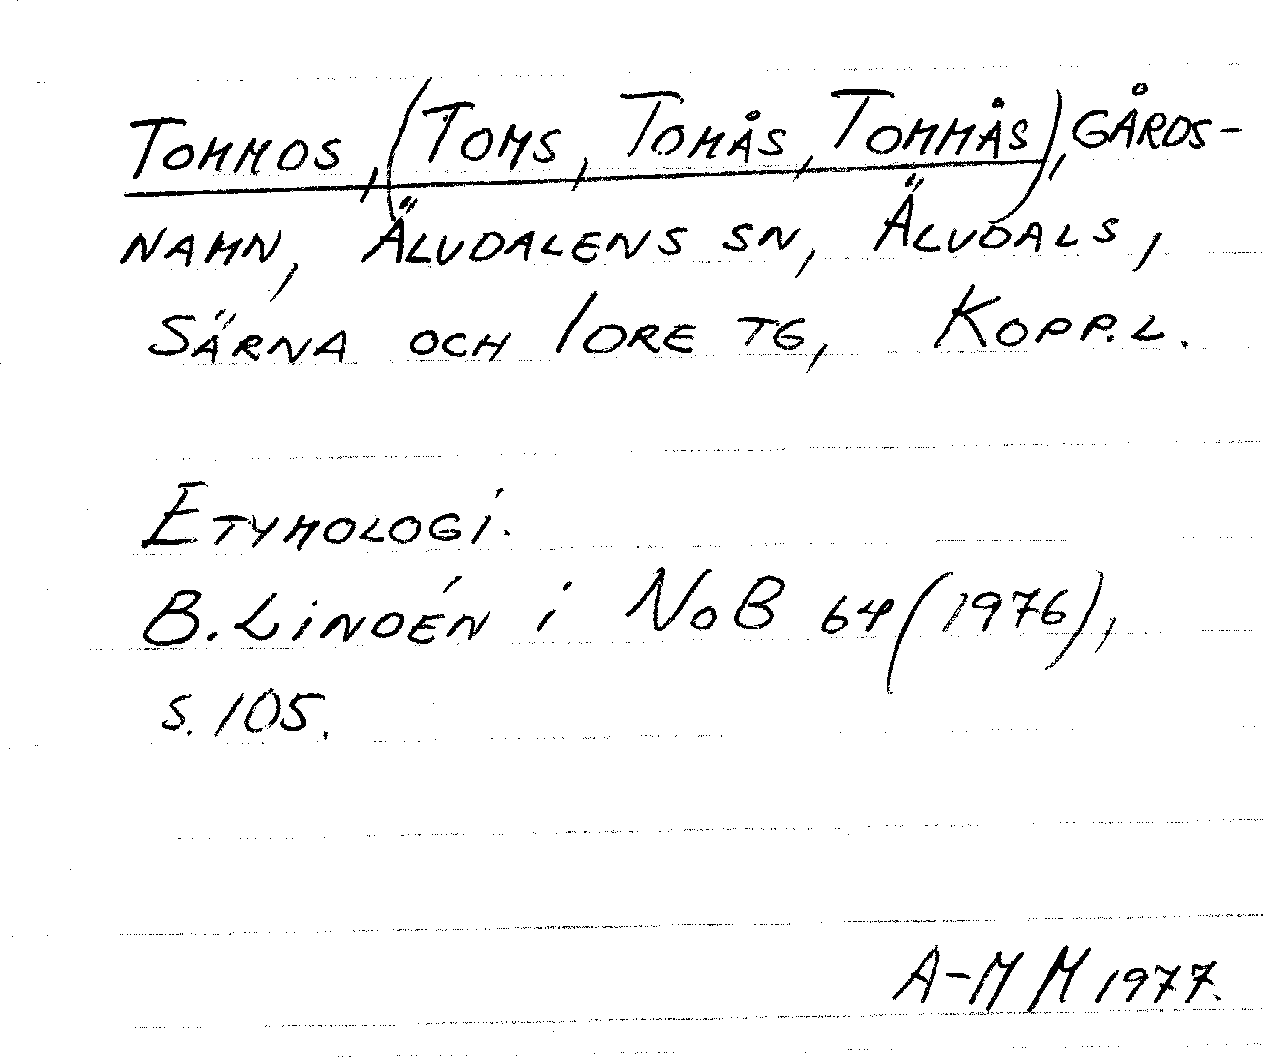 TOMMOS, (TOMS, TOMÅS, TOMMÅS), GÅRDS-
NAMN, ÄLVDALENS SN, ÄLVDALS,
SÄRNA OCH IDRE TG, KOPP.L.
ETYMOLOGI.
B. LINDÉN i NoB 64 (1976),
S. 105.
A-M M 1977.